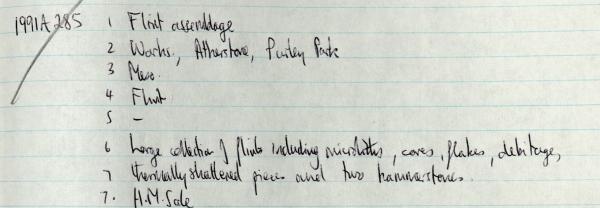 1991A285 1 Flint assemblage
2 Warks, Atherstone, Purley Park
3 Meso.
4 Flint.
5 -
6 Large collection of flints including microliths, cores, flakes, debitage,
7 thermally shattered pieces and two hammerstones.
7. H.M. Sale